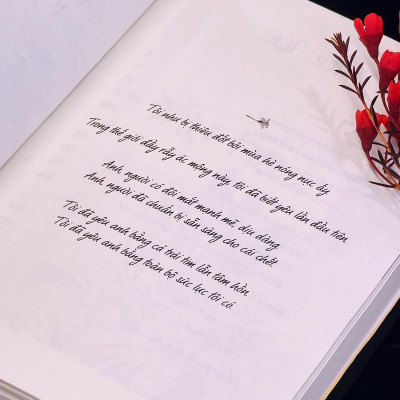 Tôi như bị thiêu đốt bởi mùa hè nóng nực ấy.
Trong thế giới đầy rẫy ác mộng này, tôi đã biết yêu lần đầu tiên.
Anh, người có đôi mắt mạnh mẽ dịu dàng
Anh, người đã chuẩn bị sẵn sàng cho cái chết.
Tôi đã yêu anh bằng cả trái tim lẫn tâm hồn.
Tôi đã yêu anh bằng toàn bộ sức lực tôi có.